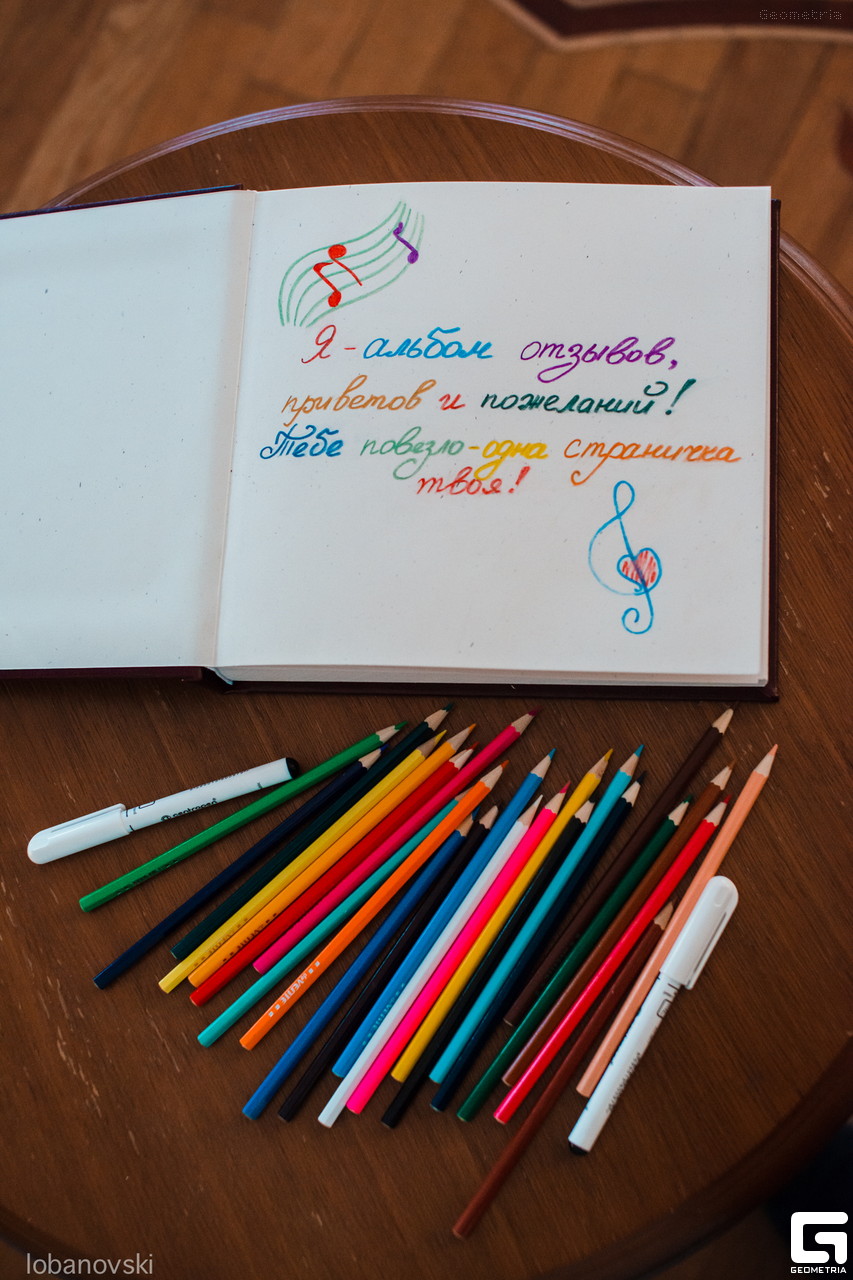 Geometria
Я - альбом отзывов,
приветов и пожеланий!
Тебе повезло - одна страничка
твоя!
centropen
lobanovski
GEOMETRIA